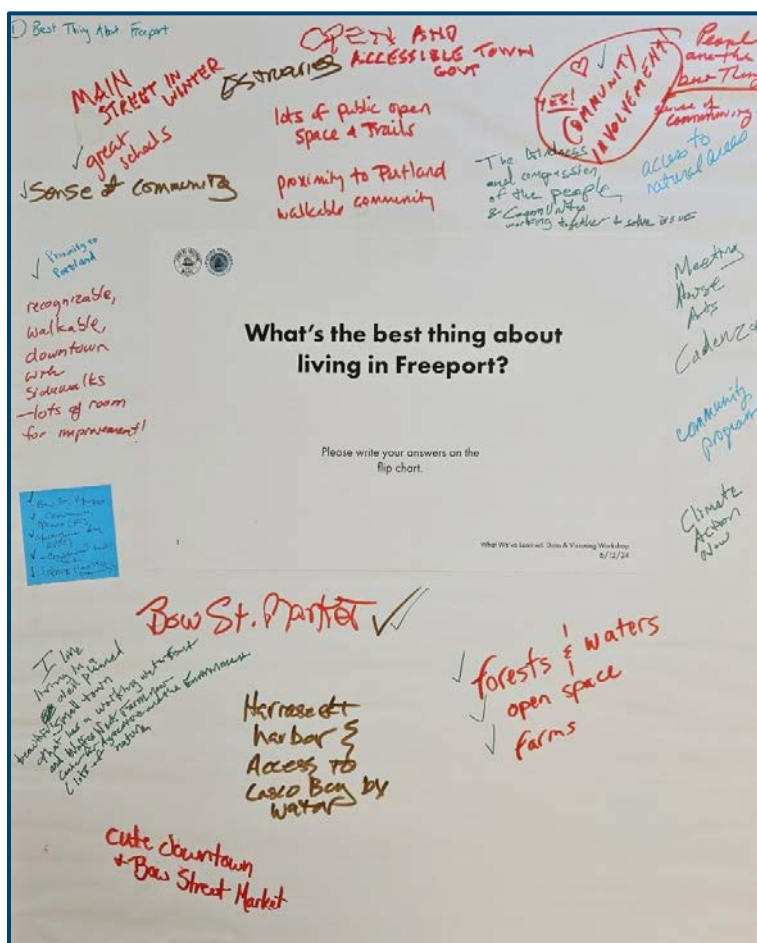 1) Best Thing About Freeport
MAIN
STREET IN
WINTER
Estuaries
OPEN AND
ACCESSIBLE TOWN
GOVT
YES!
COMMUNITY
INVOLVEMENT
People
are the
best Thing
sense of
community
great
schools
Sense of community
lots of public open
space & Trails
proximity to Portland
walkable community
The kindness
and compassion
of the people,
& Community
working together to solve issues
access to
natural areas
Proximity to
Portland
recognizable,
walkable,
downtown
with
sidewalks
—lots of room
for improvement!
What's the best thing about
living in Freeport?
Please write your answers on the
flip chart.
1
What We've Learned: Data & Visioning Workshop
6/12/24
Meeting
House
Arts
Cadenza
community
program
Climate
Action
Now
Bow St. Market
Bow St. Market
I love
living in a
well planned
beautiful small town
that has a working waterfront
and Wolfes Neck Farm
Center for Agriculture and the Environment
lots of nature
Harraseeket
harbor &
Access to
Casco Bay by
water
forests & waters
open space
farms
cute downtown
+ Bow Street Market